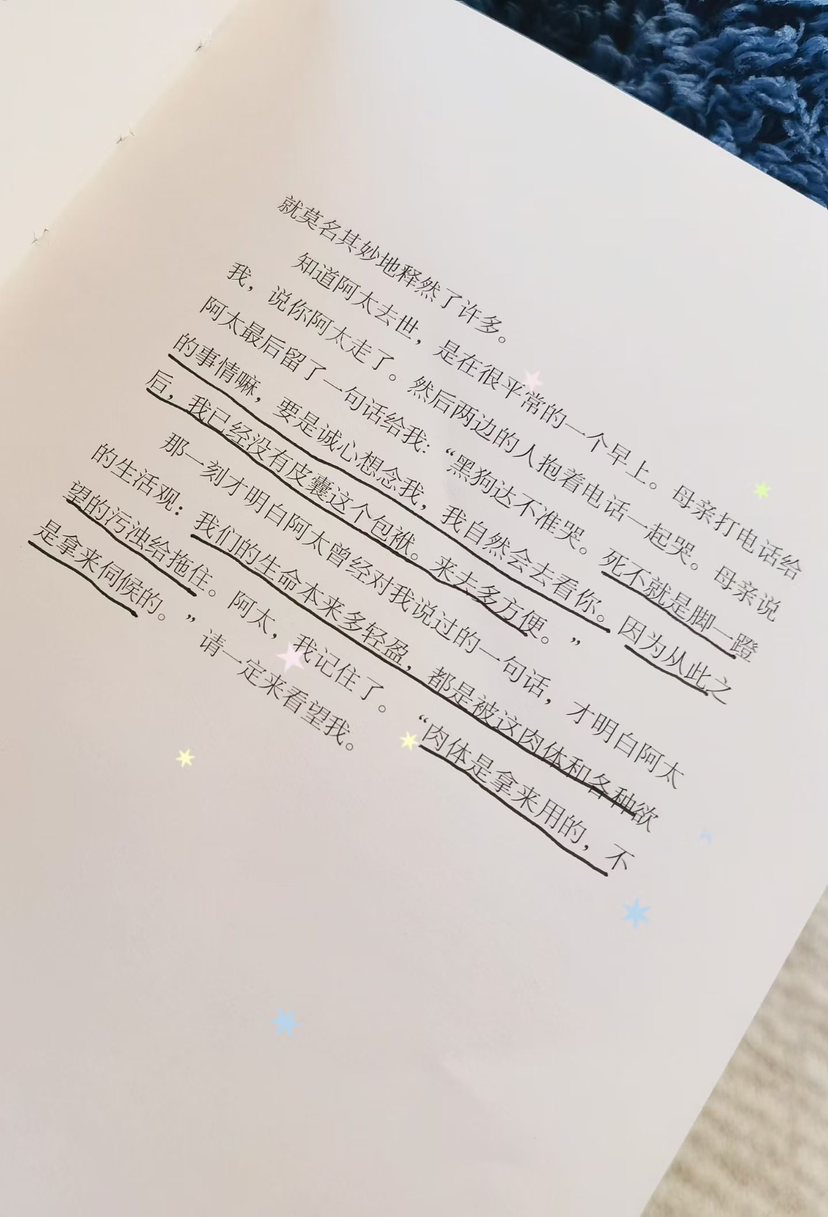 就莫名其妙地释然了许多。
知道阿太去世，是在很平常的一个早上。母亲打电话给
我，说你阿太走了。然后两边的人抱着电话一起哭。母亲说
阿太最后留了一句话给我：“黑狗达不准哭。死不就是脚一蹬
的事情嘛，要是诚心想念我，我自然会去看你。因为从此之
后，我已经没有皮囊这个包袱。来去多方便。”
那一刻才明白阿太曾经对我说过的一句话，才明白阿太
的生活观：我们的生命本来多轻盈，都是被这肉体和各种欲
望的污浊给拖住。阿太，我记住了。“肉体是拿来用的，不
是拿来伺候的。”请一定来看望我。